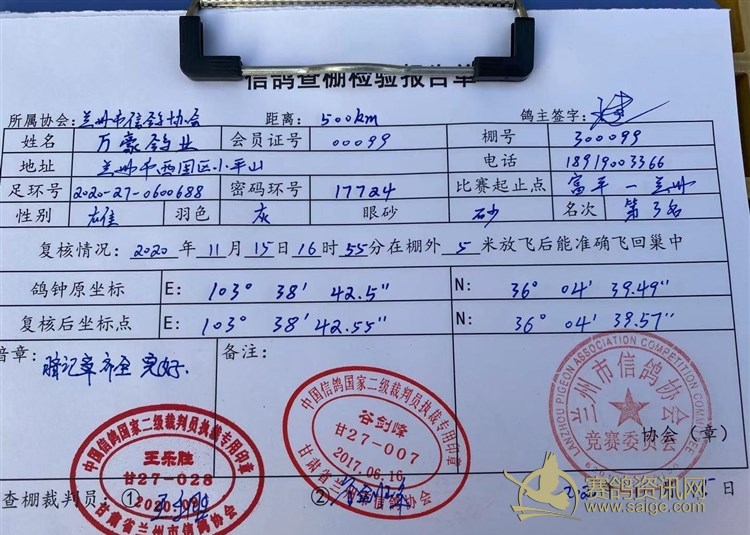 信鸽查棚检验报告单
所属协会: 兰州市信鸽协会 距离: 500km 鸽主签字:
姓名 万豪鸽业 会员证号 00099 棚号 300099
地址 兰州市西固区小平山 电话 18919003366
足环号 2020-27-0600688 密码环号 17724 比赛起止点 富平—兰州
性别 雄 羽色 灰 眼砂 砂 名次 第3名
复核情况: 2020年11月15日16时55分在棚外5米放飞后能准确飞回巢中
鸽钟原坐标 E: 103° 38' 42.5" N: 36° 04' 39.49"
复核后坐标点 E: 103° 38' 42.55" N: 36° 04' 39.57"
暗章: 暗记章齐全 完好. 备注:
中国信鸽国家二级裁判员执裁专用印章
王乐胜
甘27-028
甘肃省兰州市信鸽协会
中国信鸽国家二级裁判员执裁专用印章
谷剑峰
甘27-007
2017.06.16
甘肃省兰州市信鸽协会
LANZHOU PIGEON ASSOCIATION COMPETITION COMMITTEE
兰州市信鸽协会
竞赛委员会
协会（章）
查棚裁判员: ① ② 日
赛鸽资讯网
www.saige.com